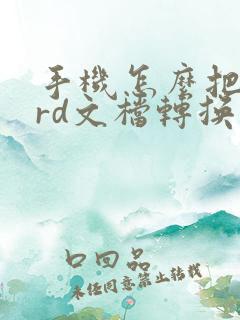 手機怎麼把
rd文檔轉換
口回品
未经同意禁止转载